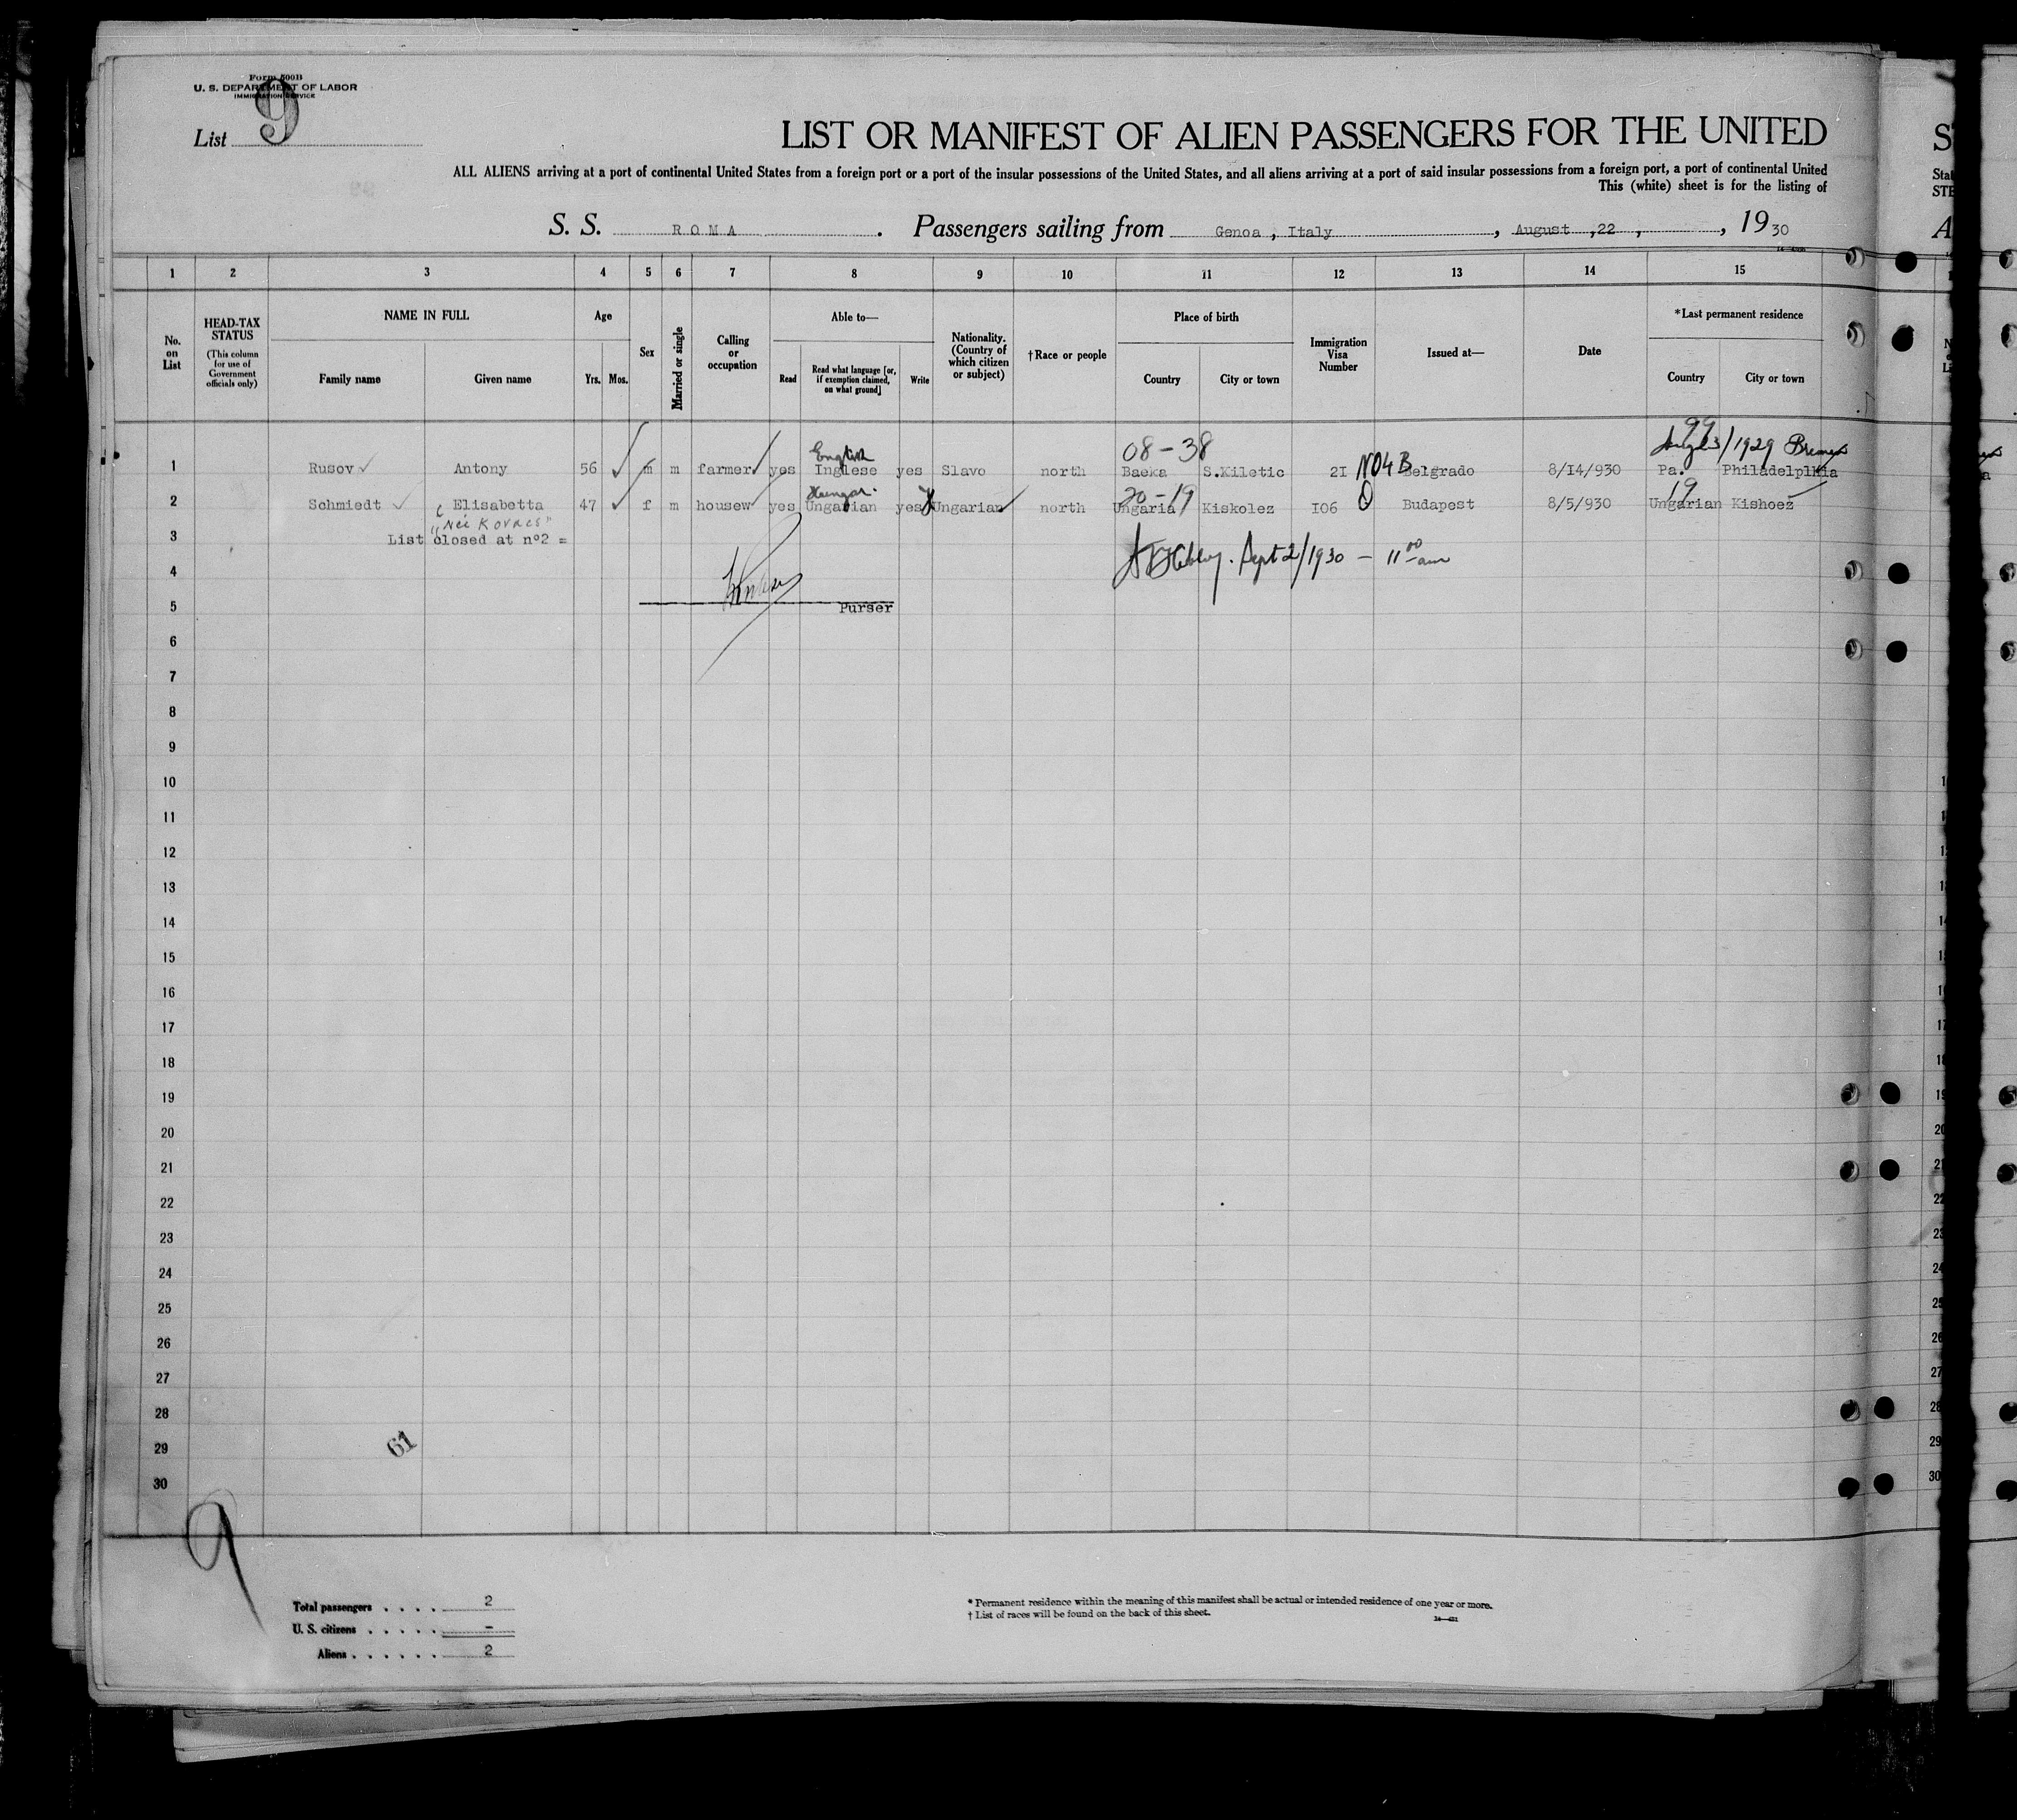 Form 500B
U. S. DEPARTMENT OF LABOR
IMMIGRATION SERVICE
List 9
LIST OR MANIFEST OF ALIEN PASSENGERS FOR THE UNITED
ALL ALIENS arriving at a port of continental United States from a foreign port or a port of the insular possessions of the United States, and all aliens arriving at a port of said insular possessions from a foreign port, a port of continental United
This (white) sheet is for the listing of
S. S. ROMA. Passengers sailing from Genoa, Italy, August, 22, , 1930
1 2 3 4 5 6 7 8 9 10 11 12 13 14 15
No. on List
HEAD-TAX STATUS
(This column for use of Government officials only)
NAME IN FULL
Family name Given name
Age
Yrs. Mos.
Sex
Married or single
Calling or occupation
Able to—
Read
Read what language [or, if exemption claimed, on what ground]
Write
Nationality. (Country of which citizen or subject)
†Race or people
Place of birth
Country City or town
Immigration Visa Number
Issued at—
Date
*Last permanent residence
Country City or town
English 08-38 99 /1929 Bremen
1 Rusov Antony 56 m m farmer yes Inglese yes Slavo north Baeka S.Kiletic 2I NO4B Belgrado 8/I4/930 Pa. Philadelplhia
Hungar. 20-19 19
2 Schmiedt Elisabetta 47 f m housew yes Ungarian yes Ungarian north Ungaria Kiskolez I06 Budapest 8/5/930 Ungarian Kishoez
"Neé Kovacs"
3 List closed at nº2 =
Sept 2/1930 - 11 00 am
4
5 Purser
6
7
8
9
10
11
12
13
14
15
16
17
18
19
20
21
22
23
24
25
26
27
28
29
61
30
9
Total passengers . . . . 2
U. S. citizens . . . . . -
Aliens . . . . . . 2
* Permanent residence within the meaning of this manifest shall be actual or intended residence of one year or more.
† List of races will be found on the back of this sheet.